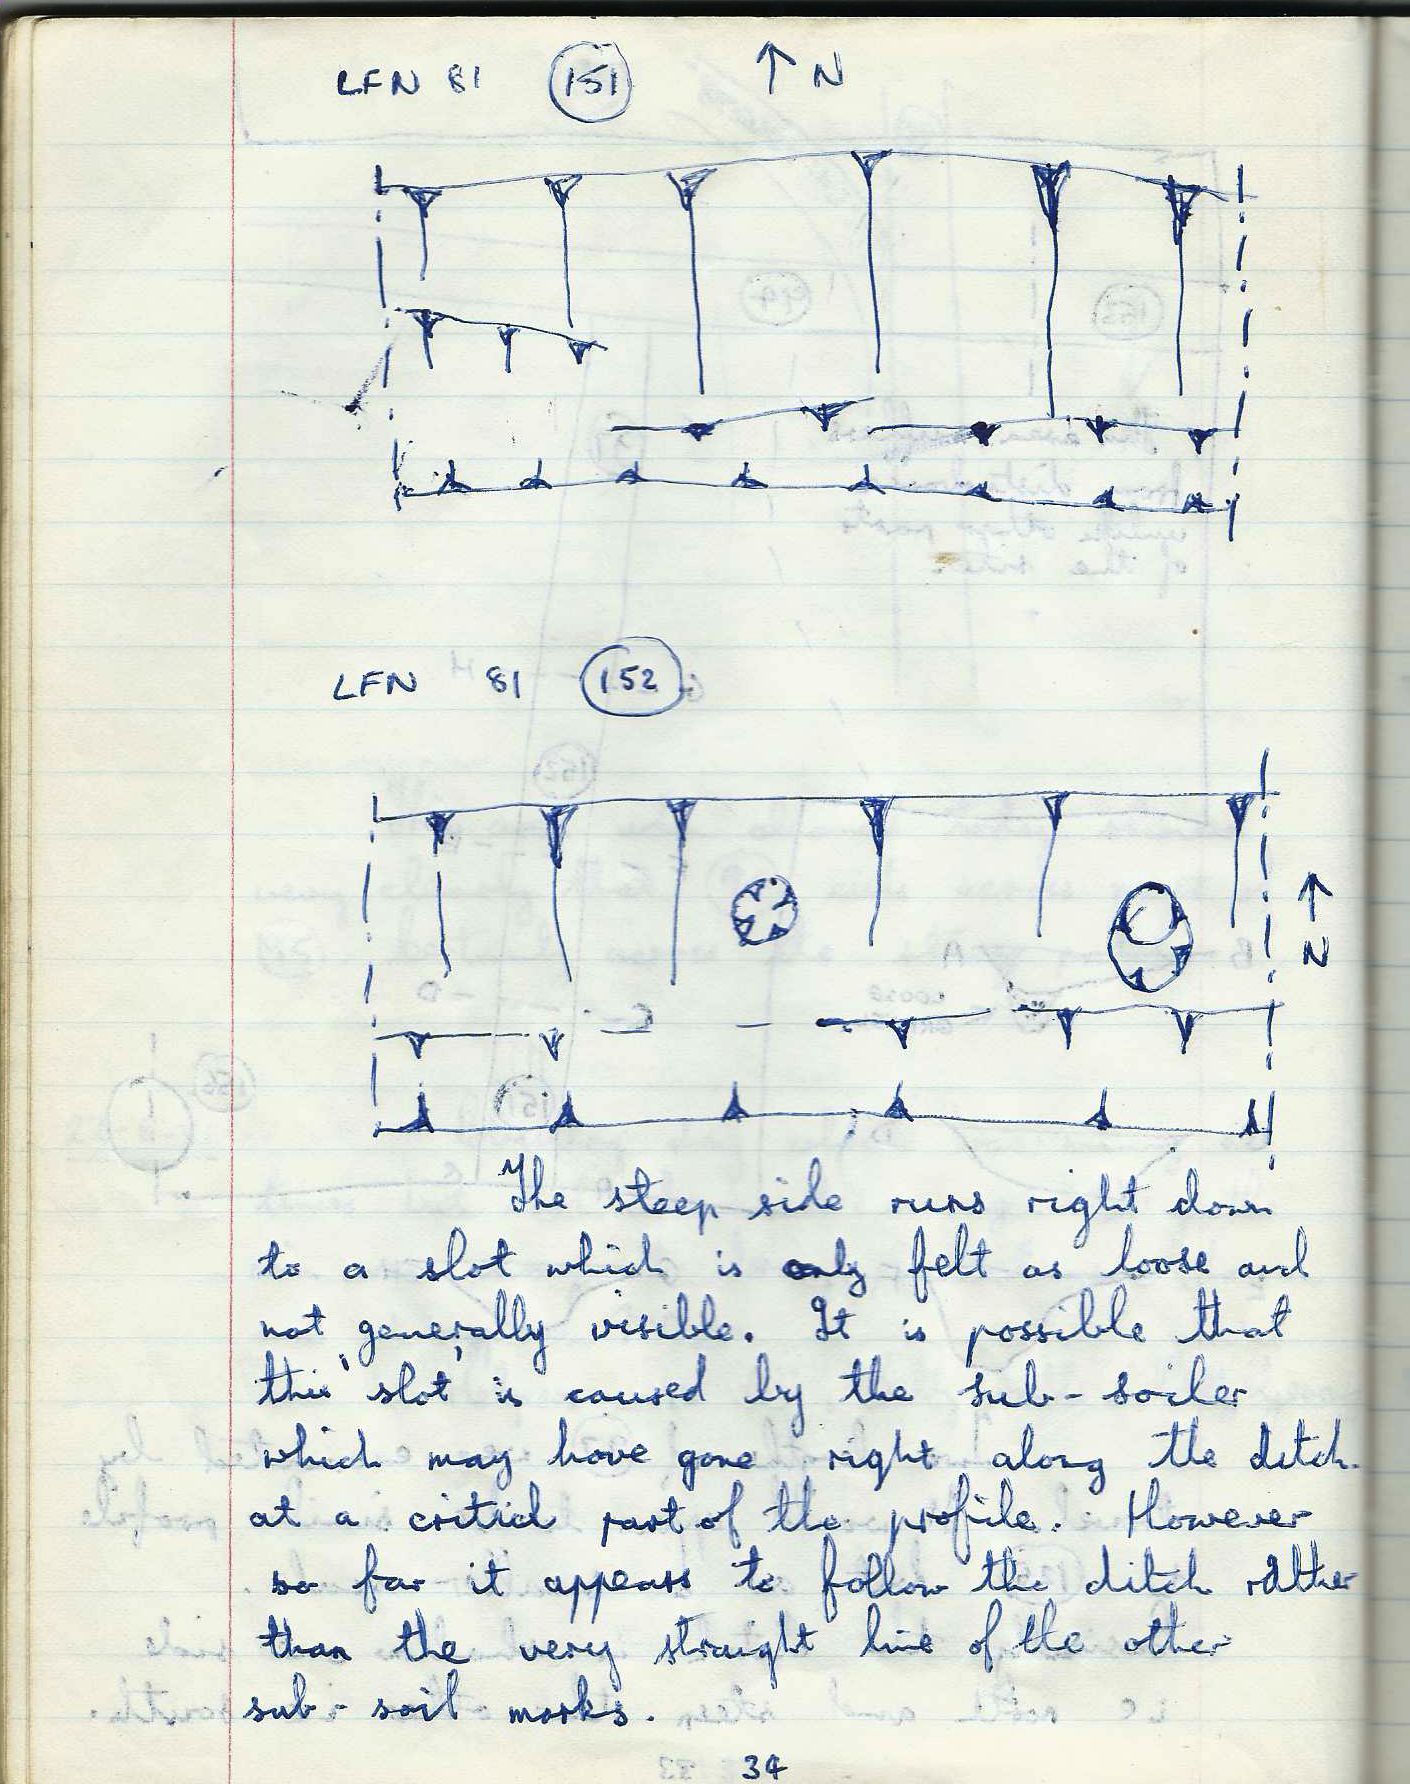 LFN 81 151 ↑ N
LFN 81 152
↑
N
The steep side runs right down
to a slot which is only felt as loose and
not generally visible. It is possible that
this 'slot' is caused by the sub-soiler
which may have gone right along the ditch
at a critical part of the profile. However
so far it appears to follow the ditch rather
than the very straight line of the other
sub-soil marks.
34